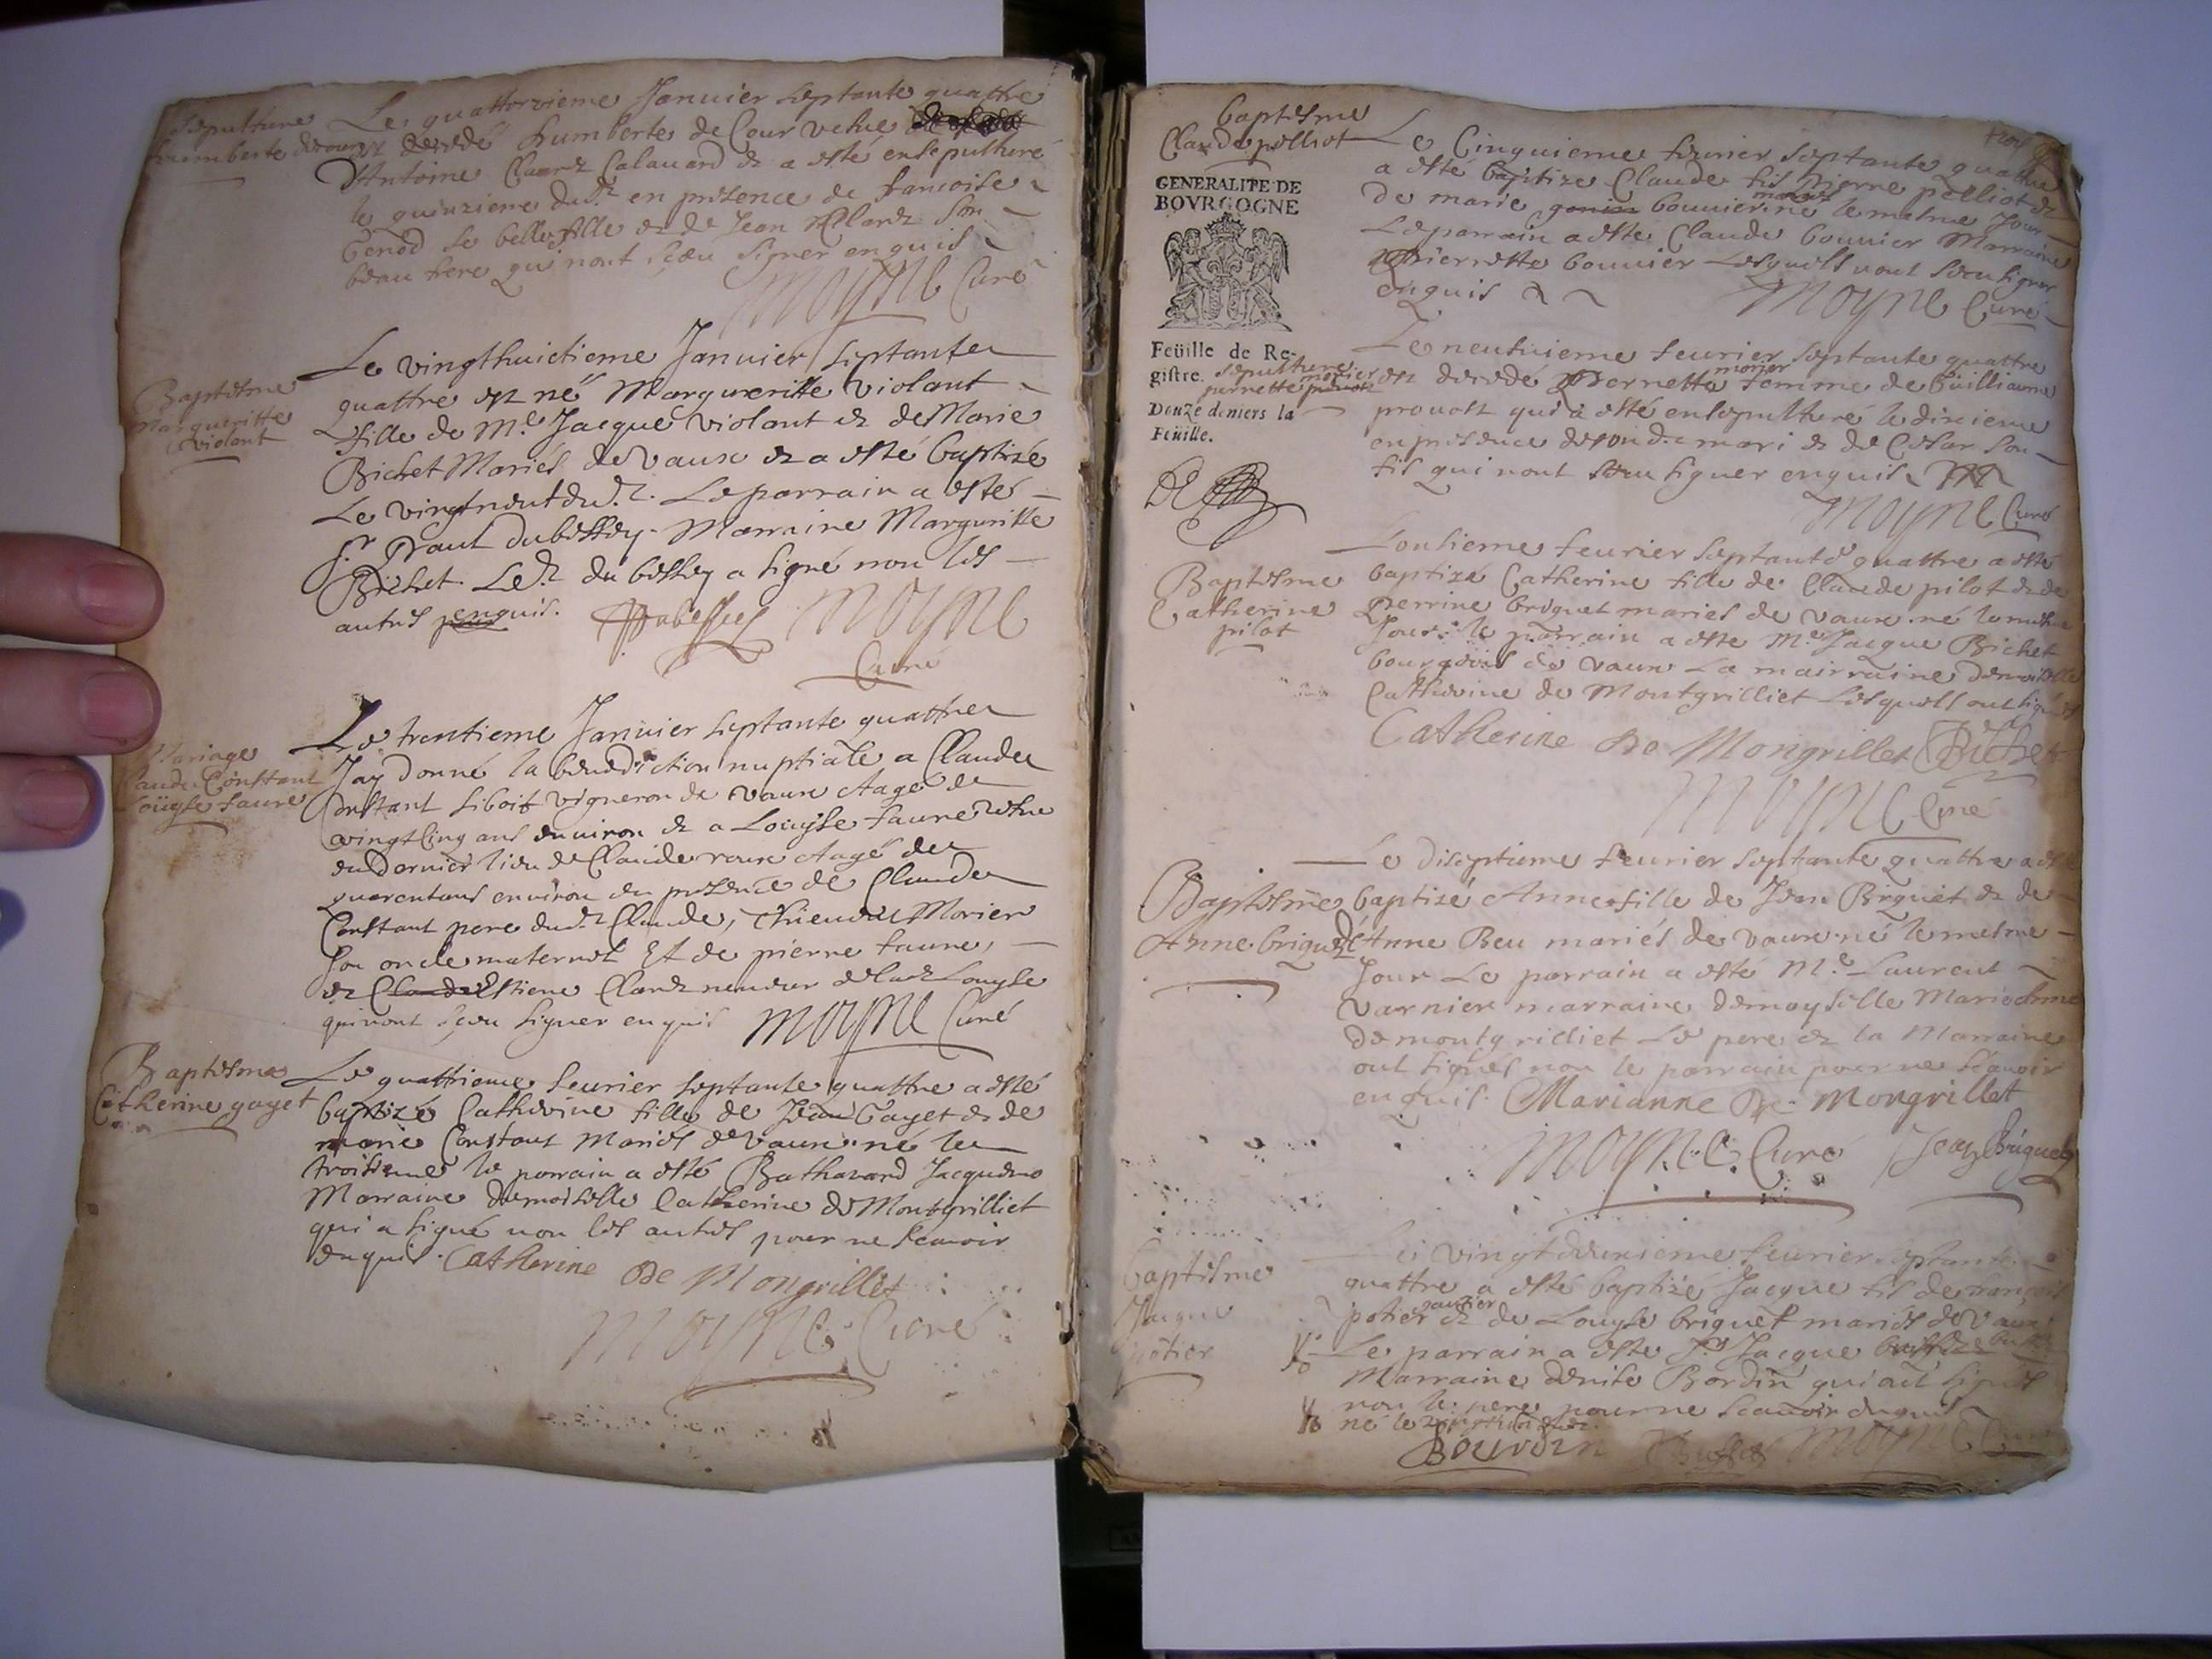 Sepulture
humberte decour
Le quattorzieme Januier septante quattre
est decedé humberte de Cour vefue
d'Antoine Claert Calauard & a esté ensepulturé
le quinzieme dud.t en presence de francoise
Genod sa belle fille & de Jean Clert son
beau frere qui n'ont sceu signer enquis
Moyne Curé
Baptesme
Margueritte
violant
Le vingthuictieme Januier septante
quattre est né Margueritte violant
fille de M.e Jacque violant & de Marie
Bichet Mariés de vaux & a esté baptisé
Le vingtneuf dud.t. Le parrain a esté
S.r Paul dubessey. Marraine Margueritte
Bichet. Led.t du bessey a signé non les
autres enquis. Dubessey Moyne
Curé
Mariage
Claude Constant
Louyse faure
Le trentieme Januier septante quattre
Jay donné la benediction nuptiale a Claude
Constant vigneron de vaux Aagé de
vingt cinq ans enuiron & a Louyse faure vefue
en dernier lieu de Claude roux Aagé de
quarent ans environ en presence de Claude
Constant pere dud.t Claude, thieuent Morier
son oncle maternel Et de pierre faure,
& Estiene Clert neueur de lad.t Louyse
qui nont sceu signer enquis Moyne Curé
Baptesme
Catherine gayet
Le quattrieme feurier septante quattre a esté
baptizé Catherine fille de Jean Gayet & de
marie Constant Mariés de vaux. né le
troisieme le parrain a esté Bathazard Jacquemo
Marraine demoiselle Catherine de Montgrilliet
qui a signé non les autres pour ne scauoir
enquis. Catherine De Mongrillet
Moyne Curé
Baptesme
Claude pelliot
GENERALITE DE
BOVRGOGNE
Feüille de Re-
gistre.
Douze deniers la
Feüille.
Le Cinquieme feurier septante quattre
a esté baptize Claude fis pierre pelliot &
de marie bouuier né le mesme Jour
Le parrain a esté Claude bouuier Marraine
pierrette bouuier Lesquels nont sceu signer
enquis Moyne Curé
sepulture
perrette morier
Le neufuieme feurier septante quattre
est decedé pernette morier femme de Guilliaume
prouost qui a esté ensepulturé le dixieme
en presence de son d.t mari & de Cesar son
fis qui nont sceu signer enquis
Moyne Curé
Baptesme
Catherine
pilot
Lonsieme feurier septante quattre a esté
baptizé Catherine fille de Claude pilot & de
perrine briquet mariés de vaux. né le mesme
Jour. le parrain a esté M.e Jacque Bichet
bourgeois de vaux La mairraine demoiselle
Catherine de Montgrilliet Lesquels ont signés
Catherine De Mongrillet Bichet
Moyne Curé
Baptesme
Anne briquet
Le diseptieme feurier septante quattre a esté
baptizé Anne fille de Jean Briquet & de
Anne Beu mariés de vaux. né le mesme
Jour Le parrain a esté M.e Laurent
varnier marraine demoyselle Marieanne
de montgrilliet Le pere & la Marraine
ont signés non le parrain pour ne scauoir
enquis. Marianne De Mongrillet
Moyne Curé Jean Briquet
Baptesme
Jacque
potier
Le vingt deuxieme feurier septante
quattre a esté baptizé Jacque fis de francois
potier & de Louyse briquet mariés de vaux
Le parrain a esté S.r Jacque
Marraine denise Bordin qui ont signés
non le pere pour ne scauoir enquis
né le
Bourdin Moyne Curé